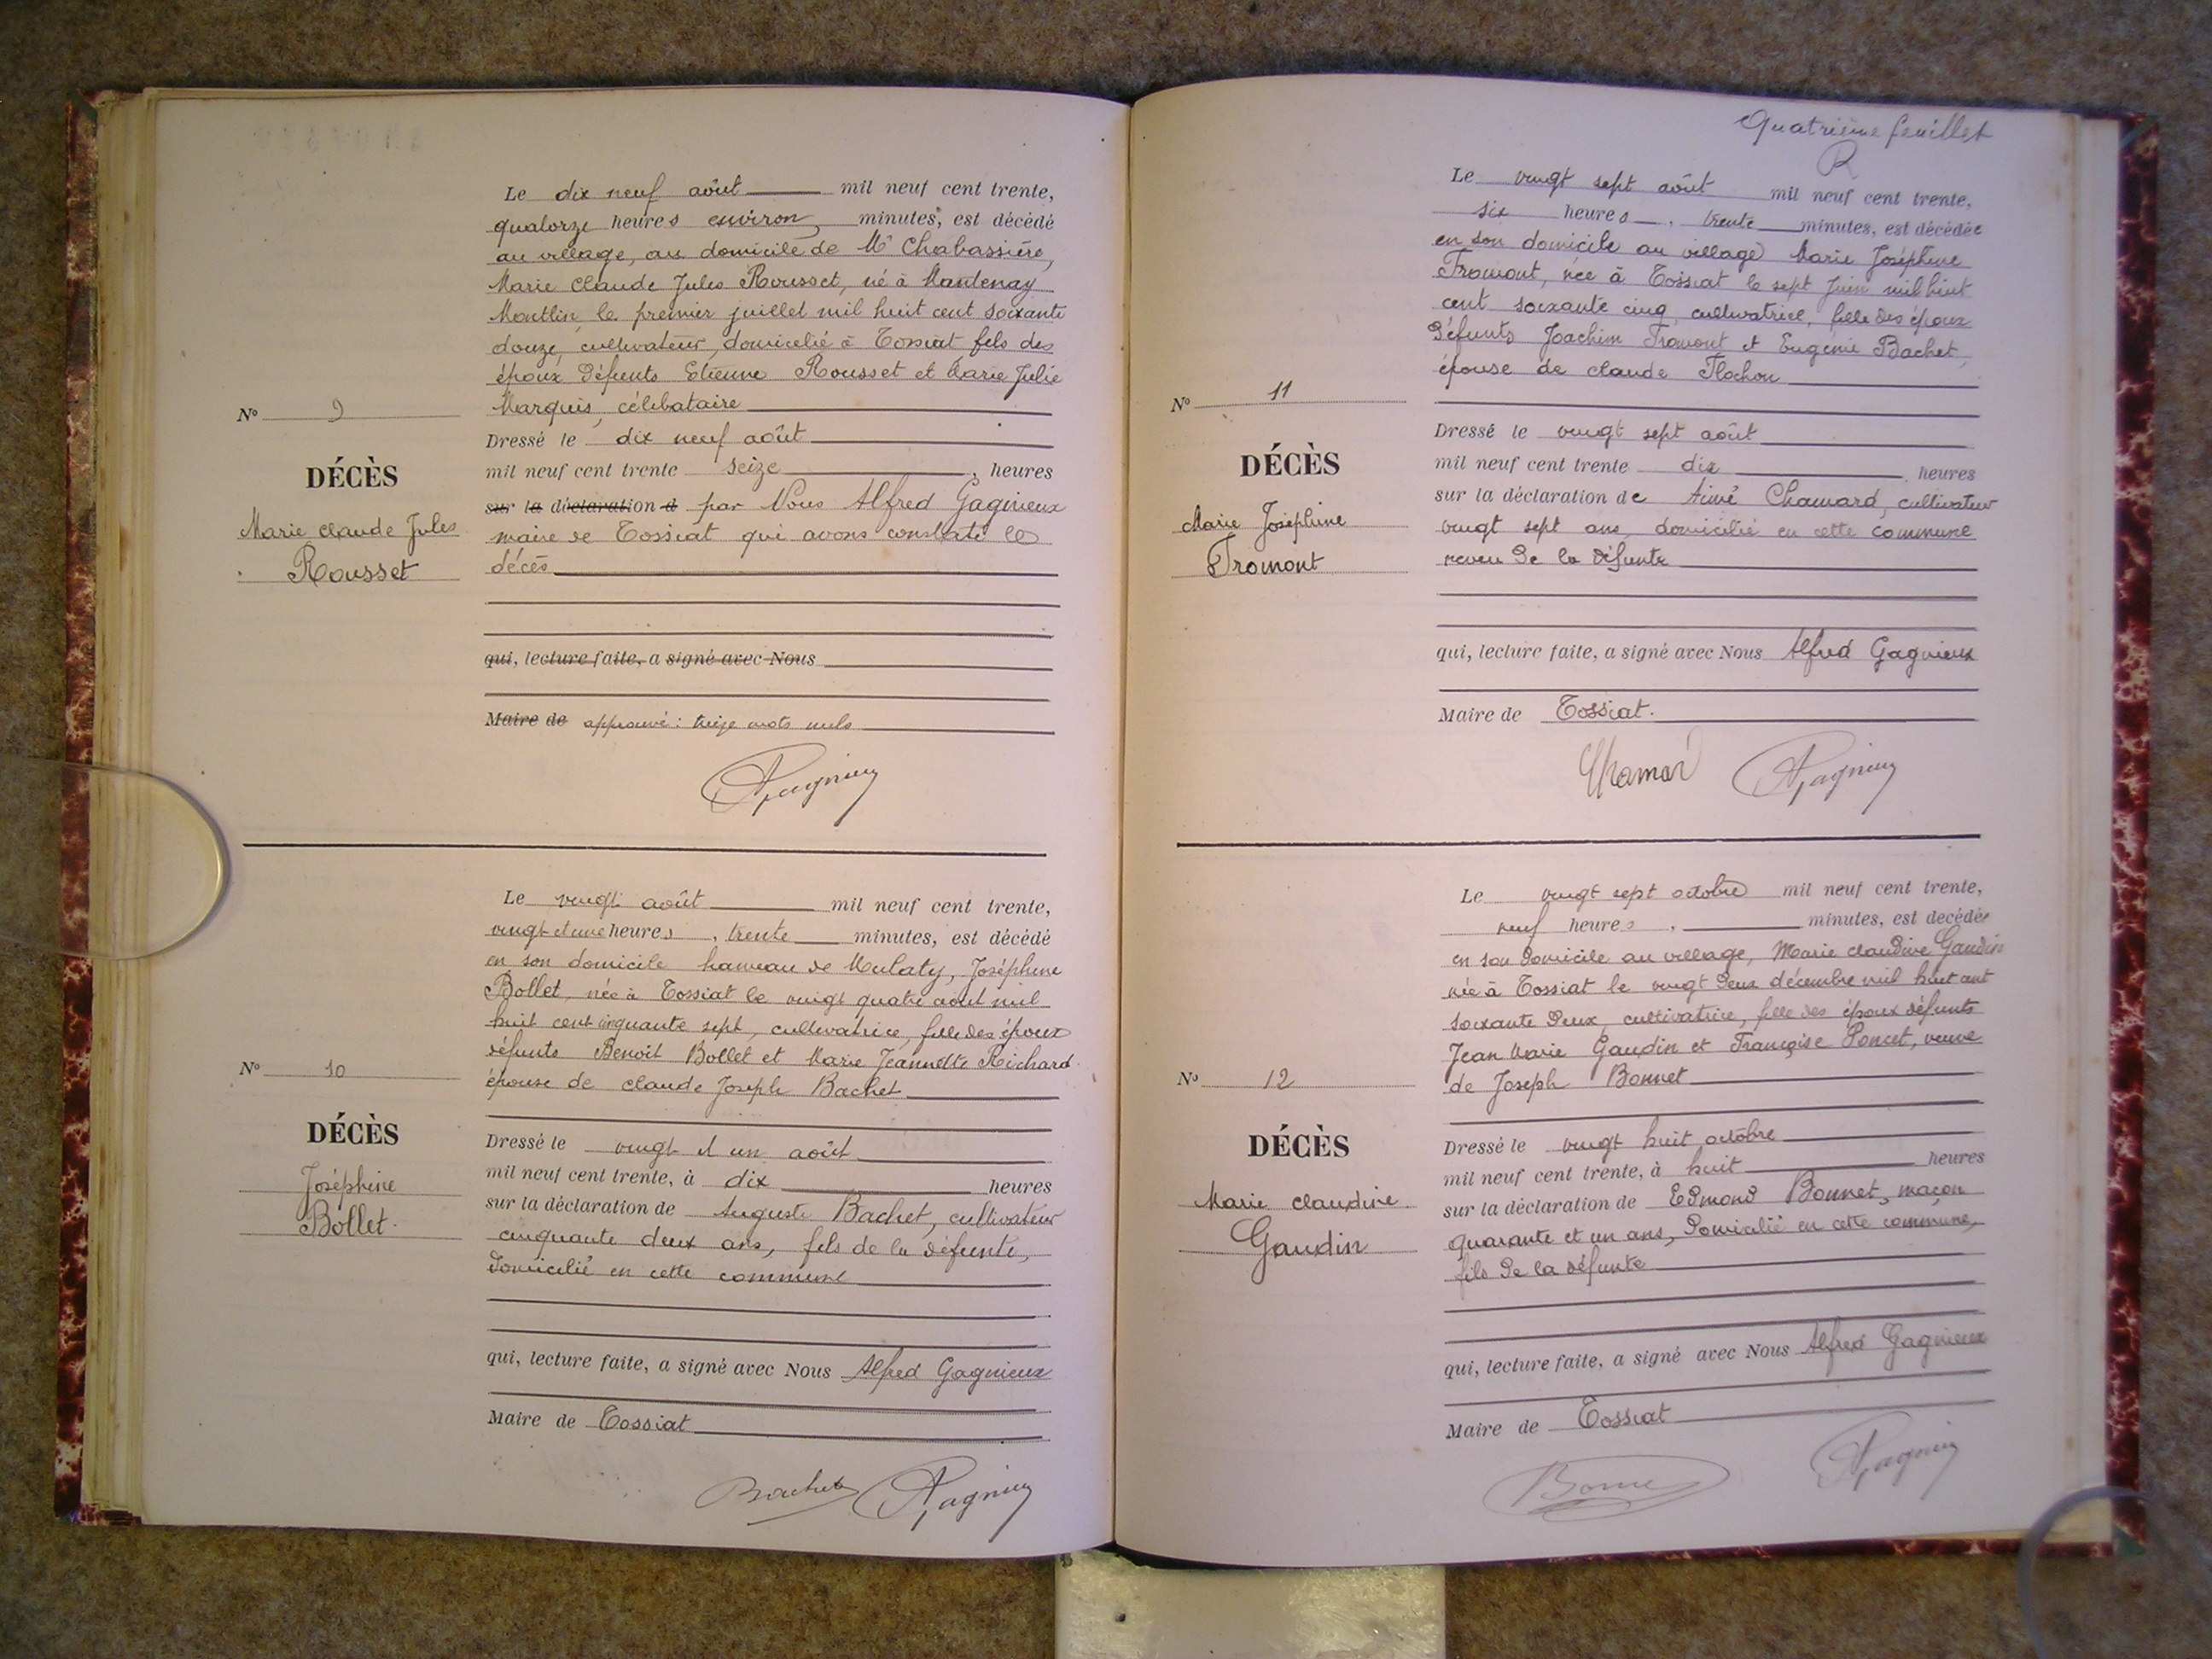 Le dix neuf août mil neuf cent trente,
quatorze heures environ minutes, est décédé
au village, au domicile de Mr Chabassière,
Marie Claude Jules Rousset, né à Mantenay
Montlin, le premier juillet mil huit cent soixante
douze, cultivateur, domicilié à Tossiat fils des
époux défunts Etienne Rousset et Marie Julie
Marquis, célibataire
No 9
DÉCÈS
Marie Claude Jules
Rousset
Dressé le dix neuf août
mil neuf cent trente seize, heures
sur la déclaration d par Nous Alfred Gagnieux
maire de Tossiat qui avons constaté le
décès
qui, lecture faite, a signé avec Nous
Maire de approuvé : treize mots nuls
Le vingt août mil neuf cent trente,
vingt et une heures, trente minutes, est décédé
en son domicile hameau de Mulaty, Joséphine
Bollet, née à Tossiat le vingt quatre août mil
huit cent cinquante sept, cultivatrice, fille des époux
défunts Benoit Bollet et Marie Jeannette Richard
épouse de Claude Joseph Bachet
No 10
DÉCÈS
Joséphine
Bollet.
Dressé le vingt et un août
mil neuf cent trente, à dix heures
sur la déclaration de Auguste Bachet, cultivateur
cinquante deux ans, fils de la défunte,
domicilié en cette commune
qui, lecture faite, a signé avec Nous Alfred Gagnieux
Maire de Tossiat
Bachet
Quatrième feuillet
R
Le vingt sept août mil neuf cent trente,
six heures, trente minutes, est décédée
en son domicile au village Marie Joséphine
Fromont, née à Tossiat le sept juin mil huit
cent soixante cinq, cultivatrice, fille des époux
défunts Joachim Fromont et Eugénie Bachet,
épouse de Claude Flochon
No 11
DÉCÈS
Marie Joséphine
Fromont
Dressé le vingt sept août
mil neuf cent trente dix, heures
sur la déclaration de Aimé Chamard, cultivateur
vingt sept ans, domicilié en cette commune
neveu de la défunte
qui, lecture faite, a signé avec Nous Alfred Gagnieux
Maire de Tossiat.
Chamard
Le vingt sept octobre mil neuf cent trente,
neuf heures, minutes, est décédée
en son domicile au village, Marie Claudine Gaudin
née à Tossiat le vingt deux décembre mil huit cent
soixante deux, cultivatrice, fille des époux défunts
Jean Marie Gaudin et Françoise Poncet, veuve
de Joseph Bonnet
No 12
DÉCÈS
Marie Claudine
Gaudin
Dressé le vingt huit octobre
mil neuf cent trente, à huit heures
sur la déclaration de Edmond Bonnet, maçon
quarante et un ans, domicilié en cette commune,
fils de la défunte
qui, lecture faite, a signé avec Nous Alfred Gagnieux
Maire de Tossiat